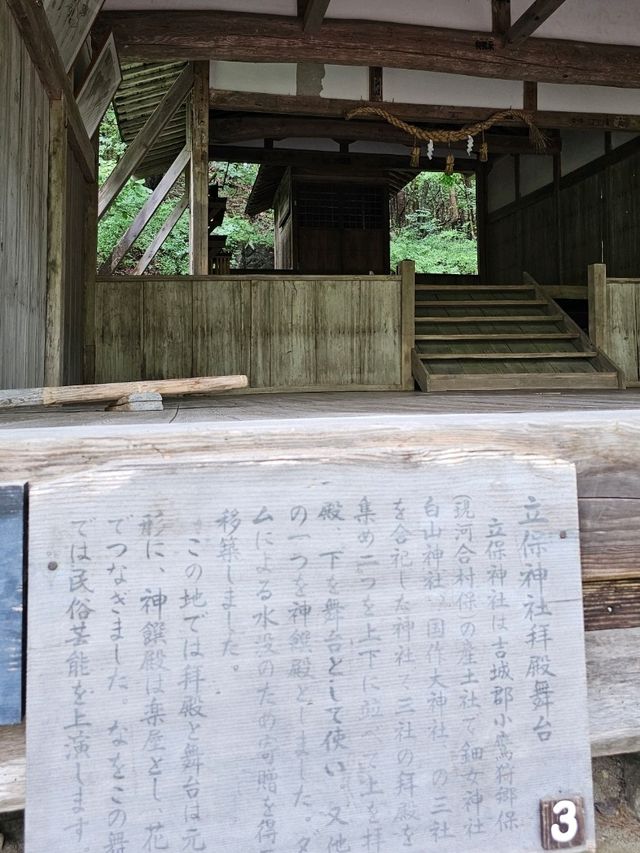 立保神社拝殿舞台
立保神社は吉城郡小鷹狩郷保
(現河合村保の産土社で鈿女神社
白山神社、国作大神社、の三社
を合祀した神社で三社の拝殿を
集め二つを上下に並べて上を拝
殿 下を舞台として使い 又他
の一つを神饌殿としました。ダ
ムによる水没のため寄贈を得
移築しました。
この地では拝殿と舞台は元
形に、神饌殿は楽屋とし、花
でつなぎました。なをこの舞
では民俗芸能を上演します。
3